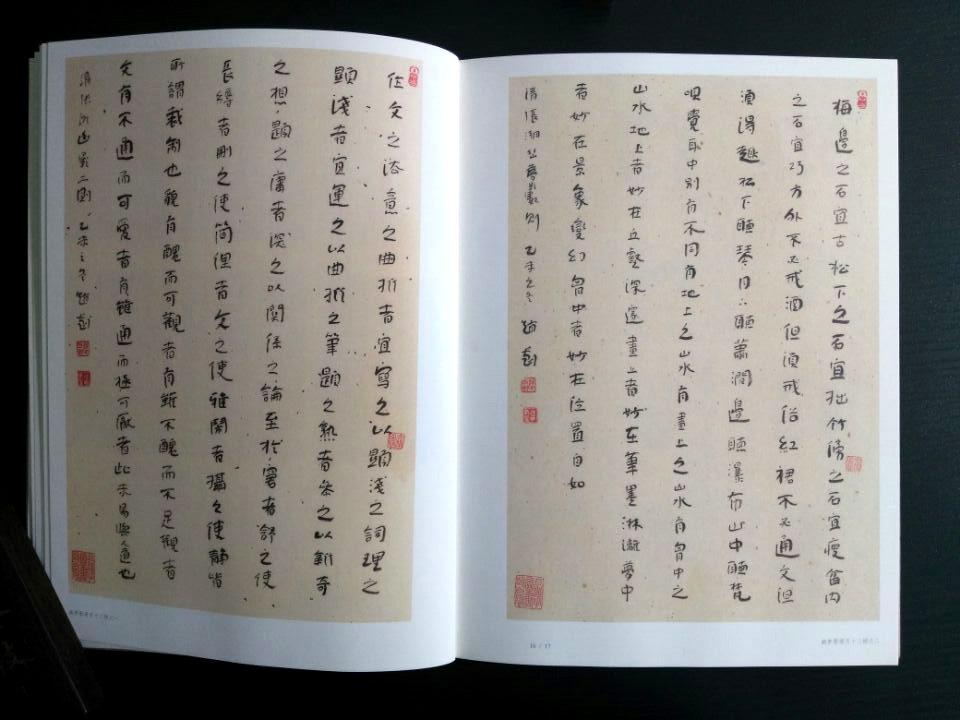 作文之法意之曲折者宜寫之以顯淺之詞理之
顯淺者宜運之以曲折之筆題之熟者參之以新奇
之想題之庸者深之以關係之論至於窘者舒之使
長縟者刪之使簡俚者文之使雅鬧者攝之使靜皆
所謂裁制也貌有醜而可觀者有雖不醜而不足觀者
文有不通而可愛者有雖通而極可厭者此未易與人道也
清張潮幽夢影二則 乙未之冬
梅邊之石宜古松下之石宜拙竹傍之石宜瘦盆內
之石宜巧方外不必戒酒但須戒俗紅裙不必通文但
須得趣松下聽琴月下聽蕭澗邊聽瀑布山中聽梵
唄覺耳中別有不同有地上之山水有畫上之山水有胷中之
山水地上者妙在丘壑深邃畫上者妙在筆墨淋漓夢中
者妙在景象變幻胷中者妙在位置自如
清張潮幽夢影數則 乙未之冬
16 / 17